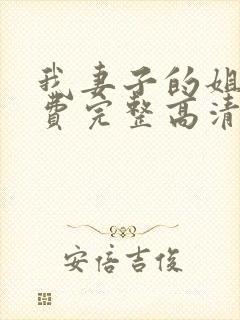 我妻子的姐
费完整高清
安倍吉俊